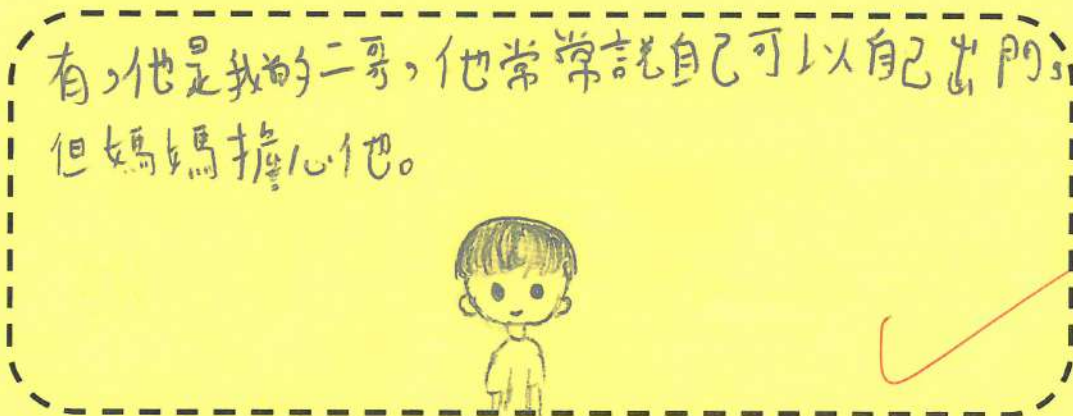 有,他是我的二哥,他常常說自己可以自己出門,
但媽媽擔心他。